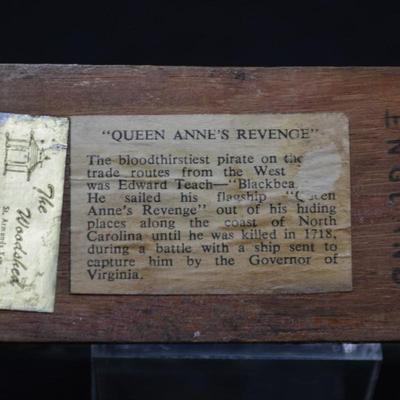 "QUEEN ANNE'S REVENGE"
The bloodthirstiest pirate on the
trade routes from the West
was Edward Teach—"Blackbea
He sailed his flagship "Queen
Anne's Revenge" out of his hiding
places along the coast of North
Carolina until he was killed in 1718,
during a battle with a ship sent to
capture him by the Governor of
Virginia.
The
Woodshed